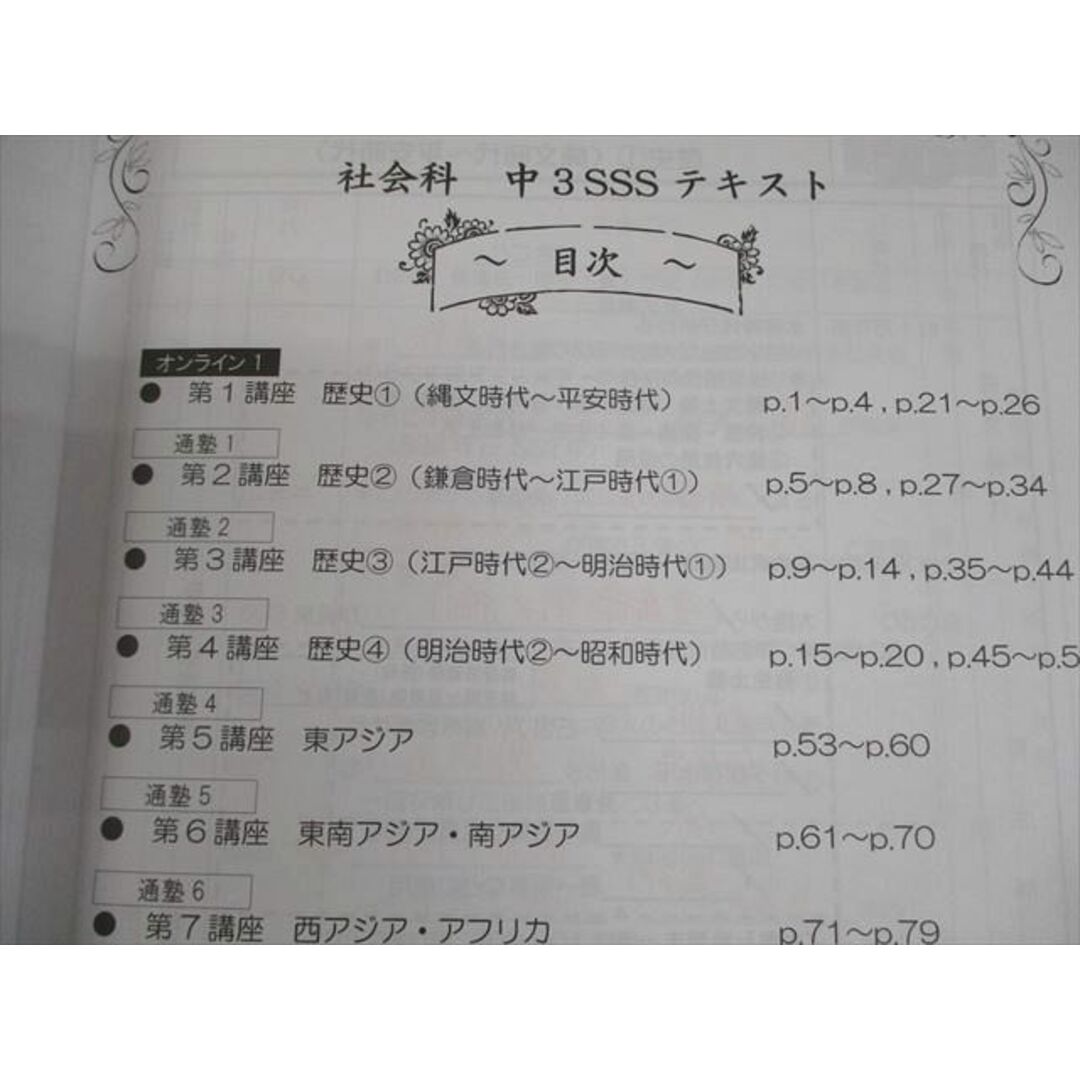 社会科 中3SSSテキスト
～ 目次 ～
オンライン1
● 第1講座 歴史①（縄文時代～平安時代） p.1～p.4 , p.21～p.26
通塾1
● 第2講座 歴史②（鎌倉時代～江戸時代①） p.5～p.8 , p.27～p.34
通塾2
● 第3講座 歴史③（江戸時代②～明治時代①） p.9～p.14 , p.35～p.44
通塾3
● 第4講座 歴史④（明治時代②～昭和時代） p.15～p.20 , p.45～p.5
通塾4
● 第5講座 東アジア p.53～p.60
通塾5
● 第6講座 東南アジア・南アジア p.61～p.70
通塾6
● 第7講座 西アジア・アフリカ p.71～p.79